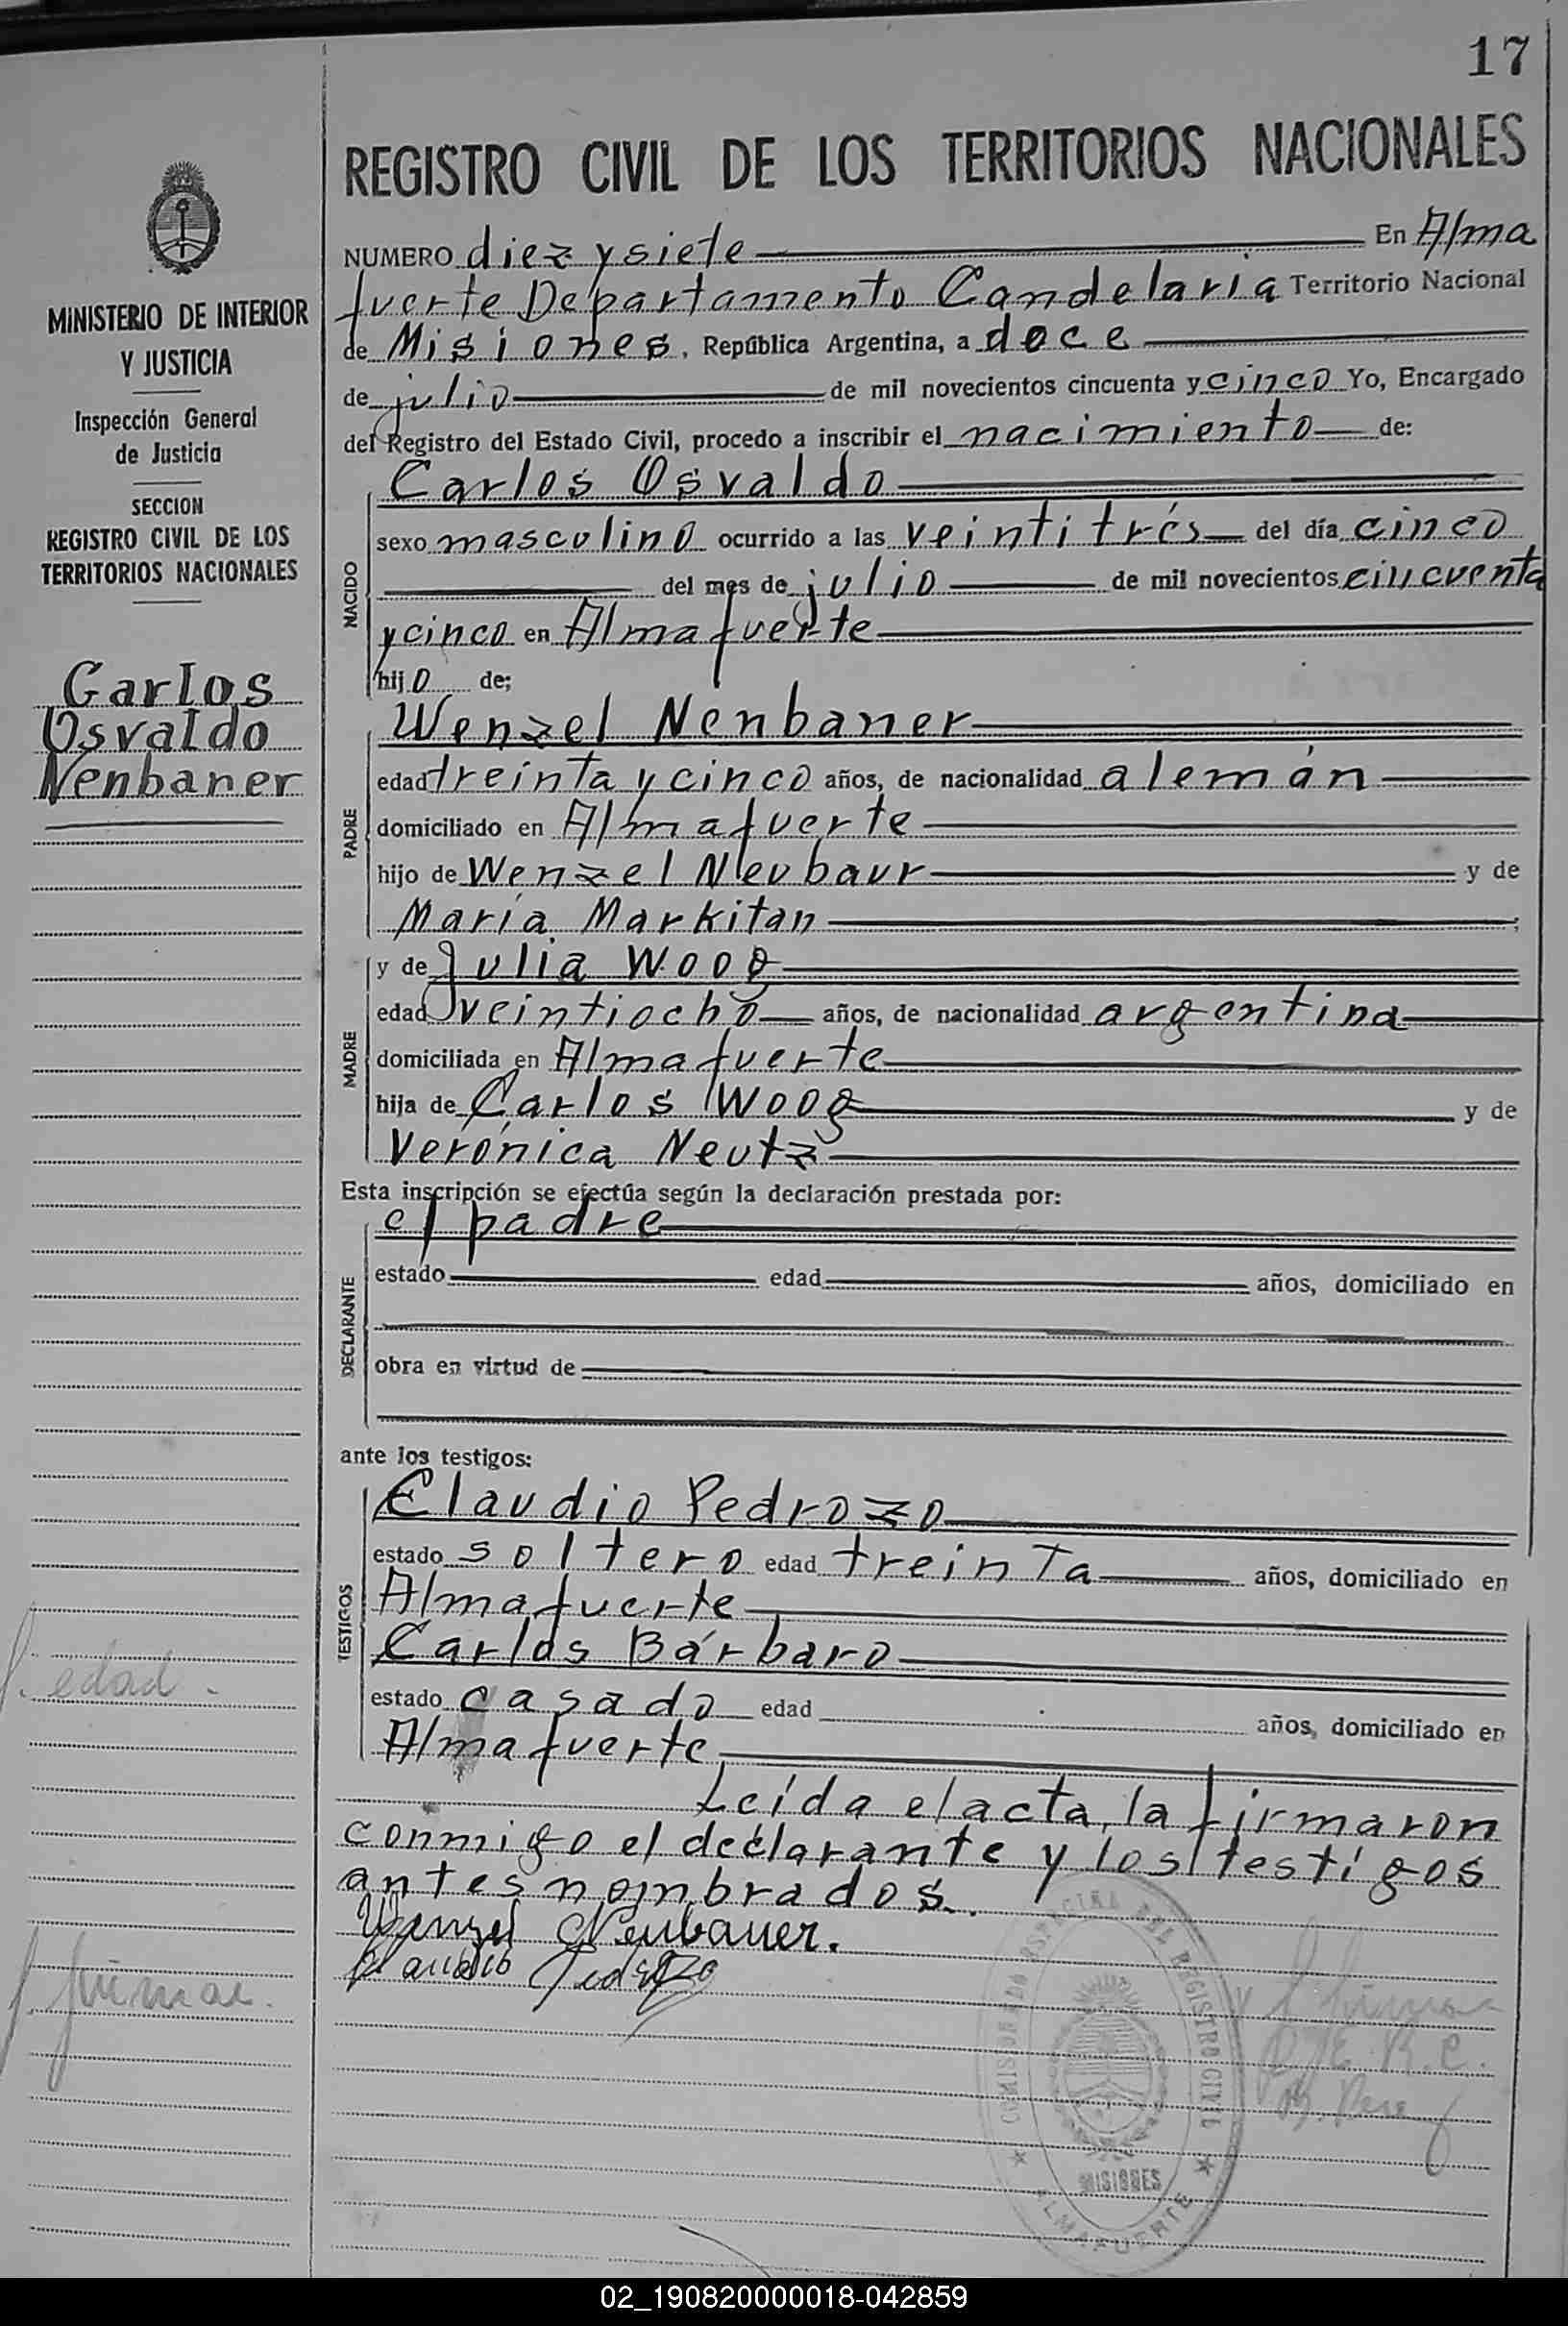 17
REGISTRO CIVIL DE LOS TERRITORIOS NACIONALES
NUMERO diez y siete En Alma
fuerte Departamento Candelaria Territorio Nacional
de Misiones, República Argentina, a doce
de julio de mil novecientos cincuenta y cinco Yo, Encargado
del Registro del Estado Civil, procedo a inscribir el nacimiento de:
NACIDO
Carlos Osvaldo
sexo masculino ocurrido a las veintitrés del día cinco
del mes de julio de mil novecientos cincuenta
y cinco en Almafuerte
hijo de;
PADRE
Wenzel Nenbaner
edad treinta y cinco años, de nacionalidad alemán
domiciliado en Almafuerte
hijo de Wenzel Neubaur y de
María Markitan
MADRE
y de Julia Woog
edad veintiocho años, de nacionalidad argentina
domiciliada en Almafuerte
hija de Carlos Woog y de
Verónica Neutz
Esta inscripción se efectúa según la declaración prestada por:
DECLARANTE
el padre
estado edad años, domiciliado en
obra en virtud de
ante los testigos:
TESTIGOS
Claudio Pedrozo
estado soltero edad treinta años, domiciliado en
Almafuerte
Carlos Bárbaro
estado casado edad años, domiciliado en
Almafuerte
Leída el acta, la firmaron
conmigo el declarante y los testigos
antes nombrados.
Wenzel Neubauer.
Claudio Pedrozo
COMISIONADO ESPECIAL DEL REGISTRO CIVIL
MISIONES
ALMAFUERTE
MINISTERIO DE INTERIOR
Y JUSTICIA
Inspección General
de Justicia
SECCION
REGISTRO CIVIL DE LOS
TERRITORIOS NACIONALES
Carlos
Osvaldo
Nenbaner
edad
firmar.
02_190820000018-042859